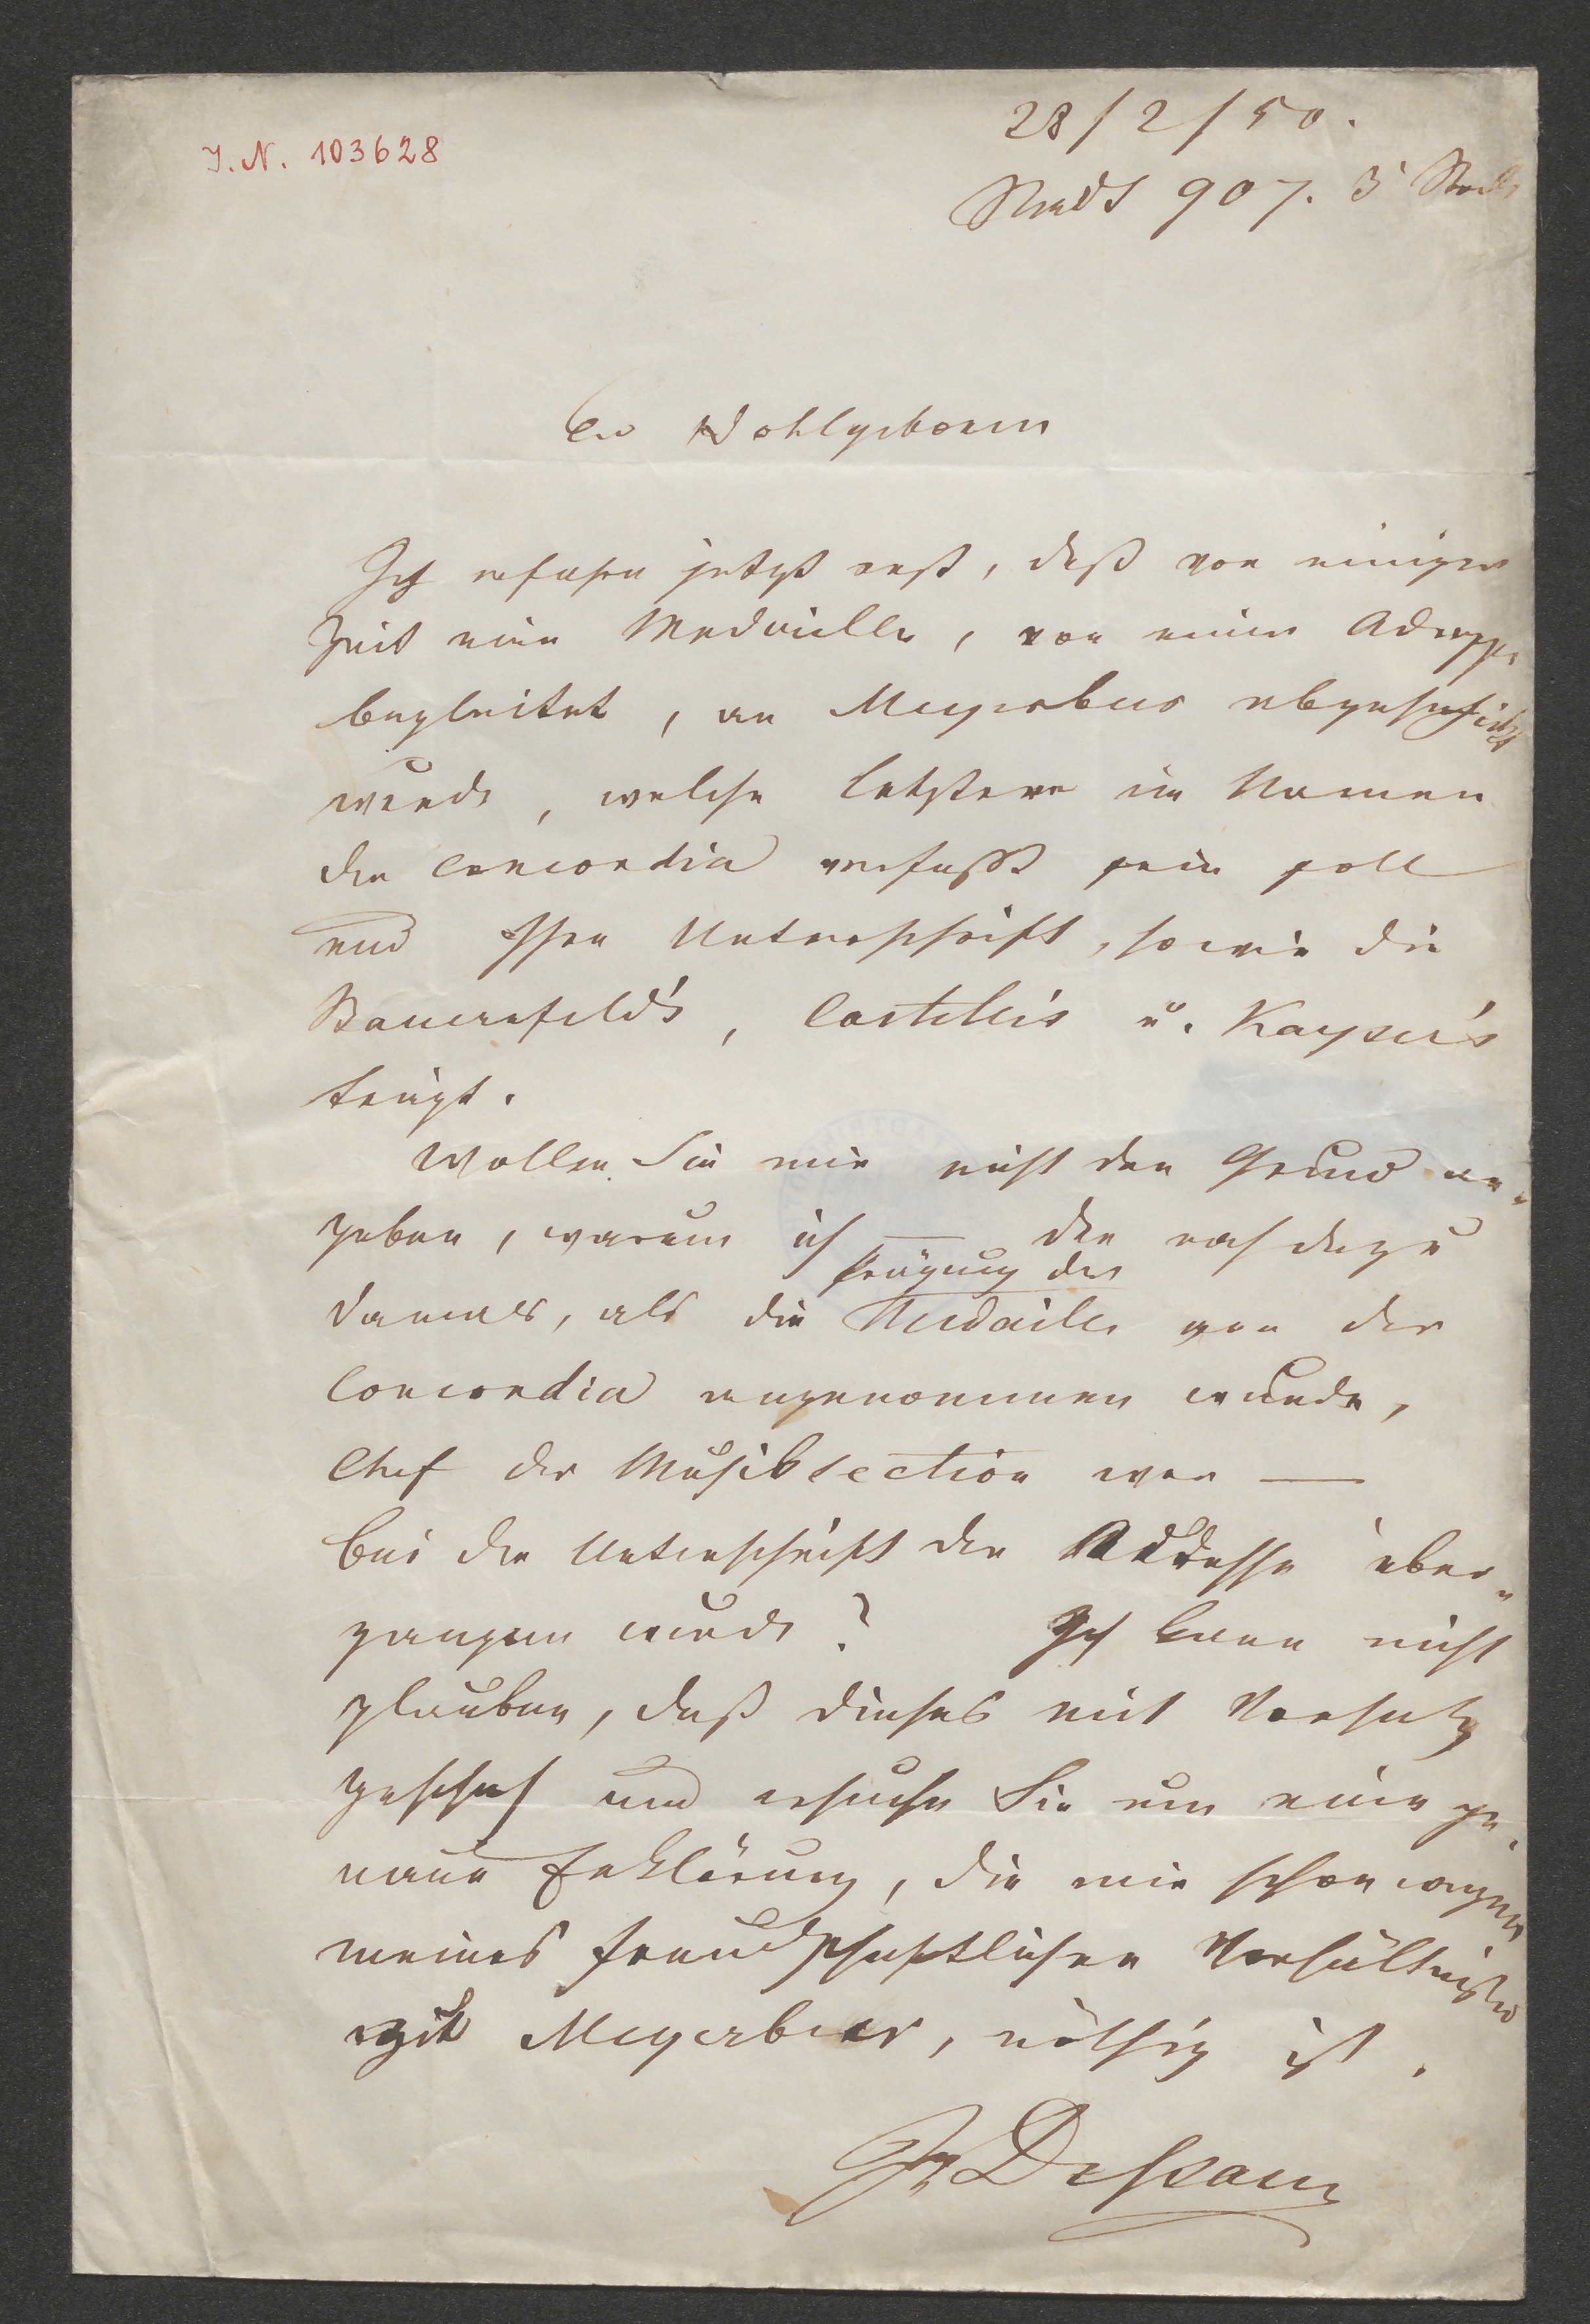 J. N. 103628
28/2/50.
Stadt 907. 3 Stock
Ew Wohlgeboren
Ich erfahre jetzt erst, daß vor einiger
Zeit eine Medaille, von einer Adresse
begleitet, an Meyerbeer abgeschickt
wurde, welche letztere im Namen
der Concordia verfaßt sein soll
und Ihre Unterschrift, sowie die
Bauernfeld's, Castelli's u. Kayser's
trägt.
Wollen Sie mir nicht den Grund an-
geben, warum ich — der noch dazu
Prägung der
damals, als die Medaille von der
Concordia angenommen wurde,
Chef der Musiksection war —
bei der Unterschrift der Addresse über-
gangen wurde? Ich kann nicht
glauben, daß dieses mit Vorsatz
geschah und ersuche Sie um eine ge-
naue Erklärung, die mir schon wegen
meines freundschaftlichen Verhältnisses
mit Meyerbeer, nöthig ist.
Dessauer